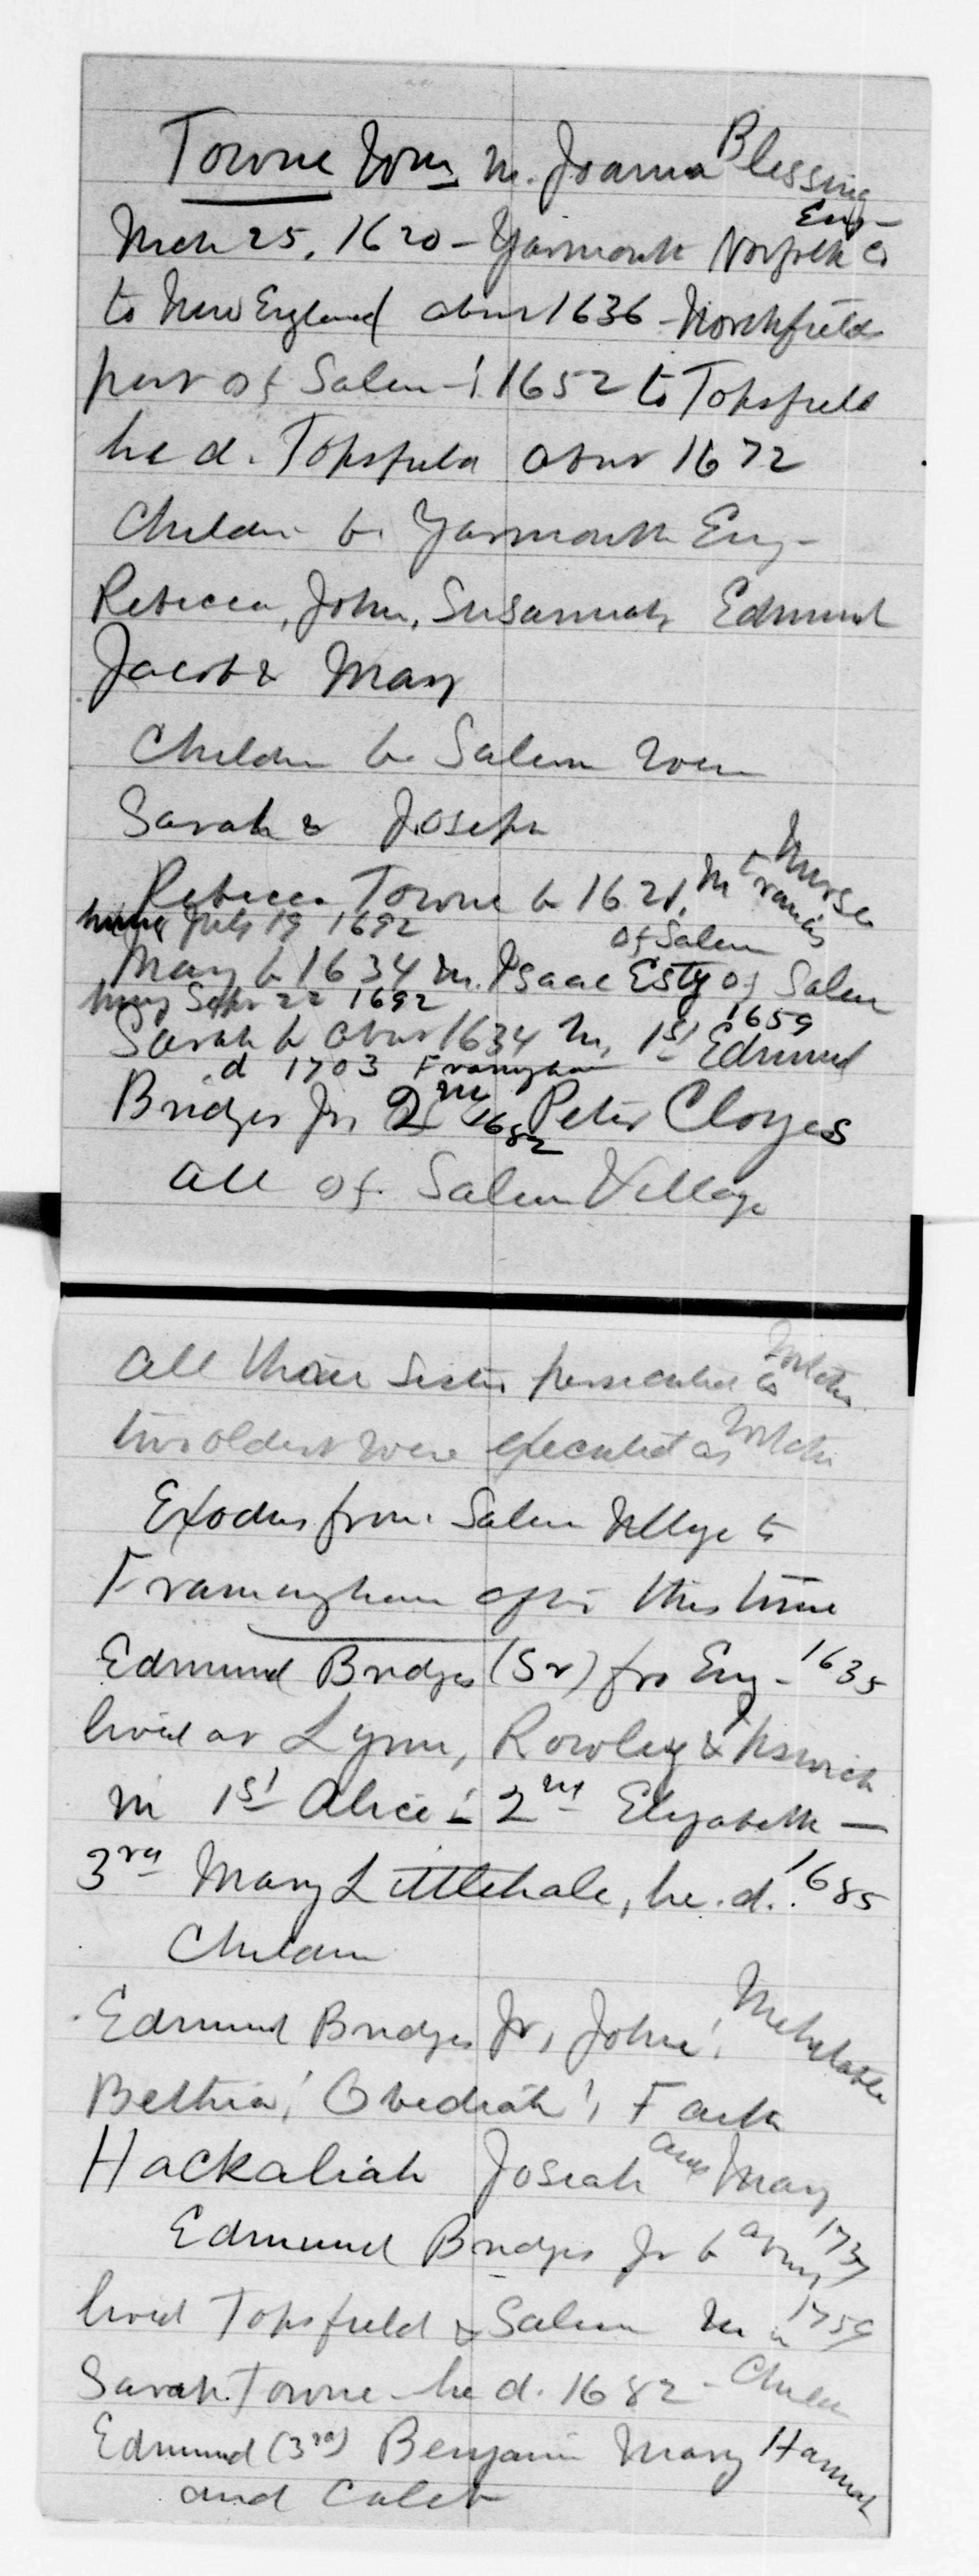 Towne Wm m. Joanna Blessing
Mch 25, 1620 - Yarmouth Norfolk Co Eng-
to New England about 1636 - Northfields
part of Salem - 1652 to Topsfield
he d. Topsfield about 1672
Children b. Yarmouth Eng-
Rebecca, John, Susannah, Edmund
Jacob & Mary
Children b. Salem were
Sarah & Joseph
Rebecca Towne b 1621, m Francis Nurse
hung July 19 1692 of Salem
Mary b 1634 m. Isaac Esty of Salem
hung Sept 22 1692
Sarah b about 1634 m, 1st Edmund 1659
d 1703 Framingham
Bridges Jr, 2nd m 1682 Peter Cloyes
all of Salem Village
All three sisters persecuted as witches
two oldest were executed as witches
Exodus from Salem Village to
Framingham after this time
Edmund Bridges (Sr) fro Eng - 1635
lived at Lynn, Rowley & Ipswich
m 1st Alice; 2nd Elizabeth —
3rd Mary Littlehale, he. d. 1685
Children
Edmund Bridges Jr, John, Mehitable
Bethia, Obediah, Faith
Hackaliah Josiah and Mary
Edmund Bridges Jr b about 1737
lived Topsfield & Salem m in 1759
Sarah Towne - he d. 1682 - Children
Edmund (3rd) Benjamin Mary Hannah
and Caleb